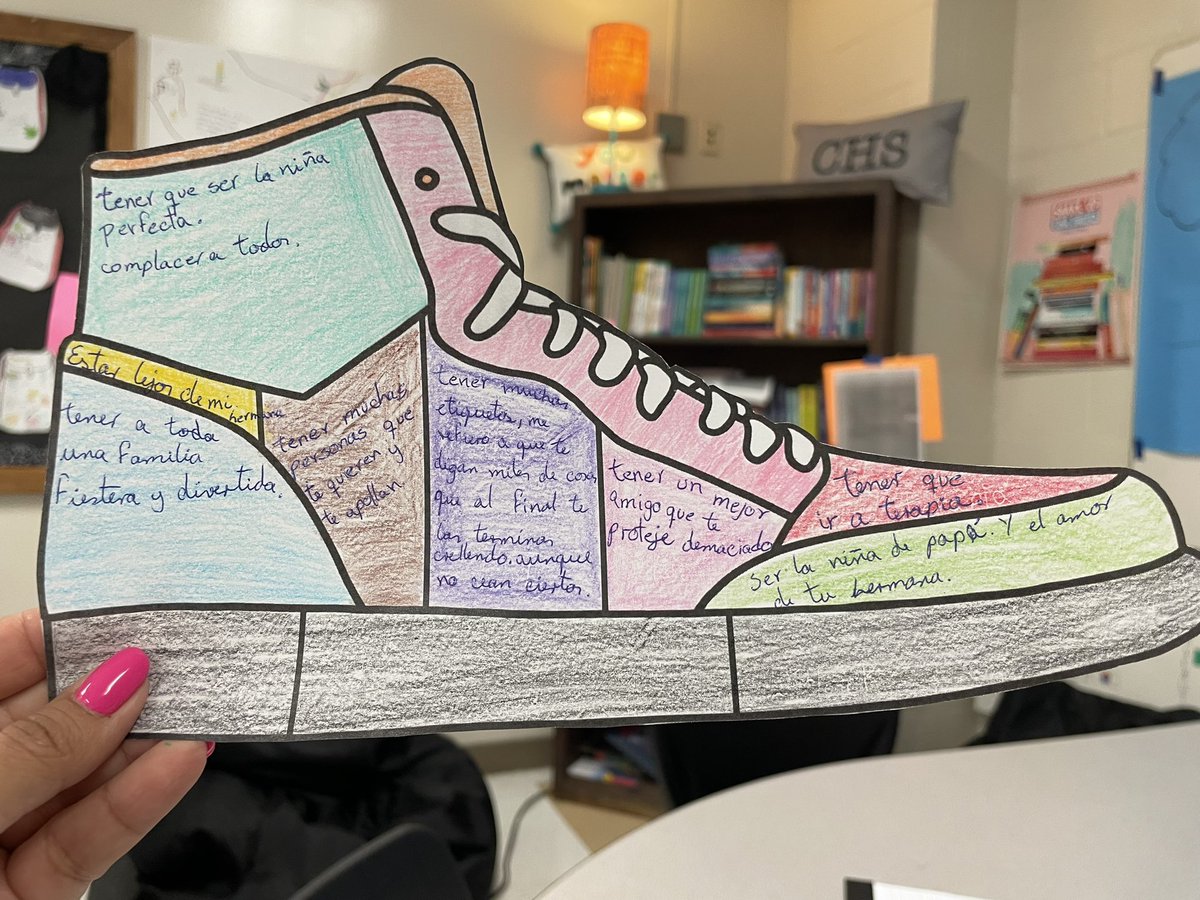 tener que ser la niña
perfecta.
complacer a todos.
Estar lejos de mi
hermana
tener a toda
una familia
fiestera y divertida.
tener muchas
personas que
te quieren y
te apollan.
tener muchas
etiquetas, me
refiero a que te
digan miles de cosas
que al final te
las terminas
crellendo. aunque
no cean ciertos.
tener un mejor
amigo que te
proteje demaciado
tener que
ir a terapia.
ser la niña de papá. Y el amor
de tu hermana.
CHS